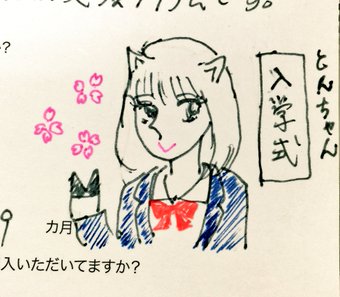 か?
とんちゃん
入学式
9
カ月
入いただいてますか?